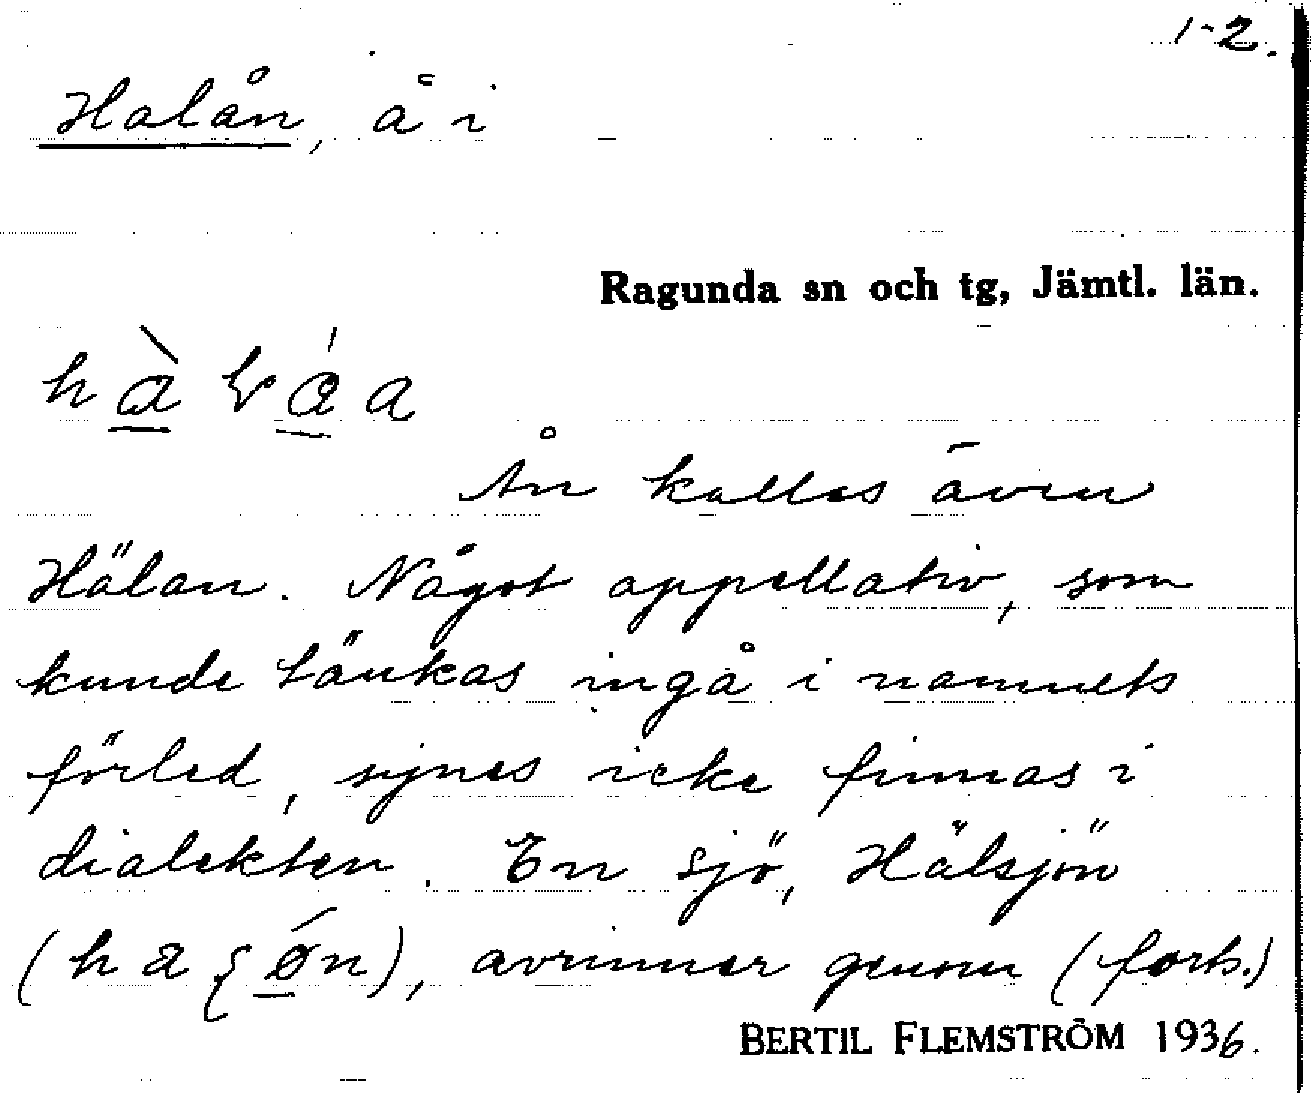 1-2.
Halån, å i
Ragunda sn och tg, Jämtl. län.
Ån kallas även
Hälan. Något appellativ, som
kunde tänkas ingå i namnets
förled, synes icke finnas i
dialekten. En sjö, Hälsjön
avrinner genom (forts.)
BERTIL FLEMSTRÖM 1936.